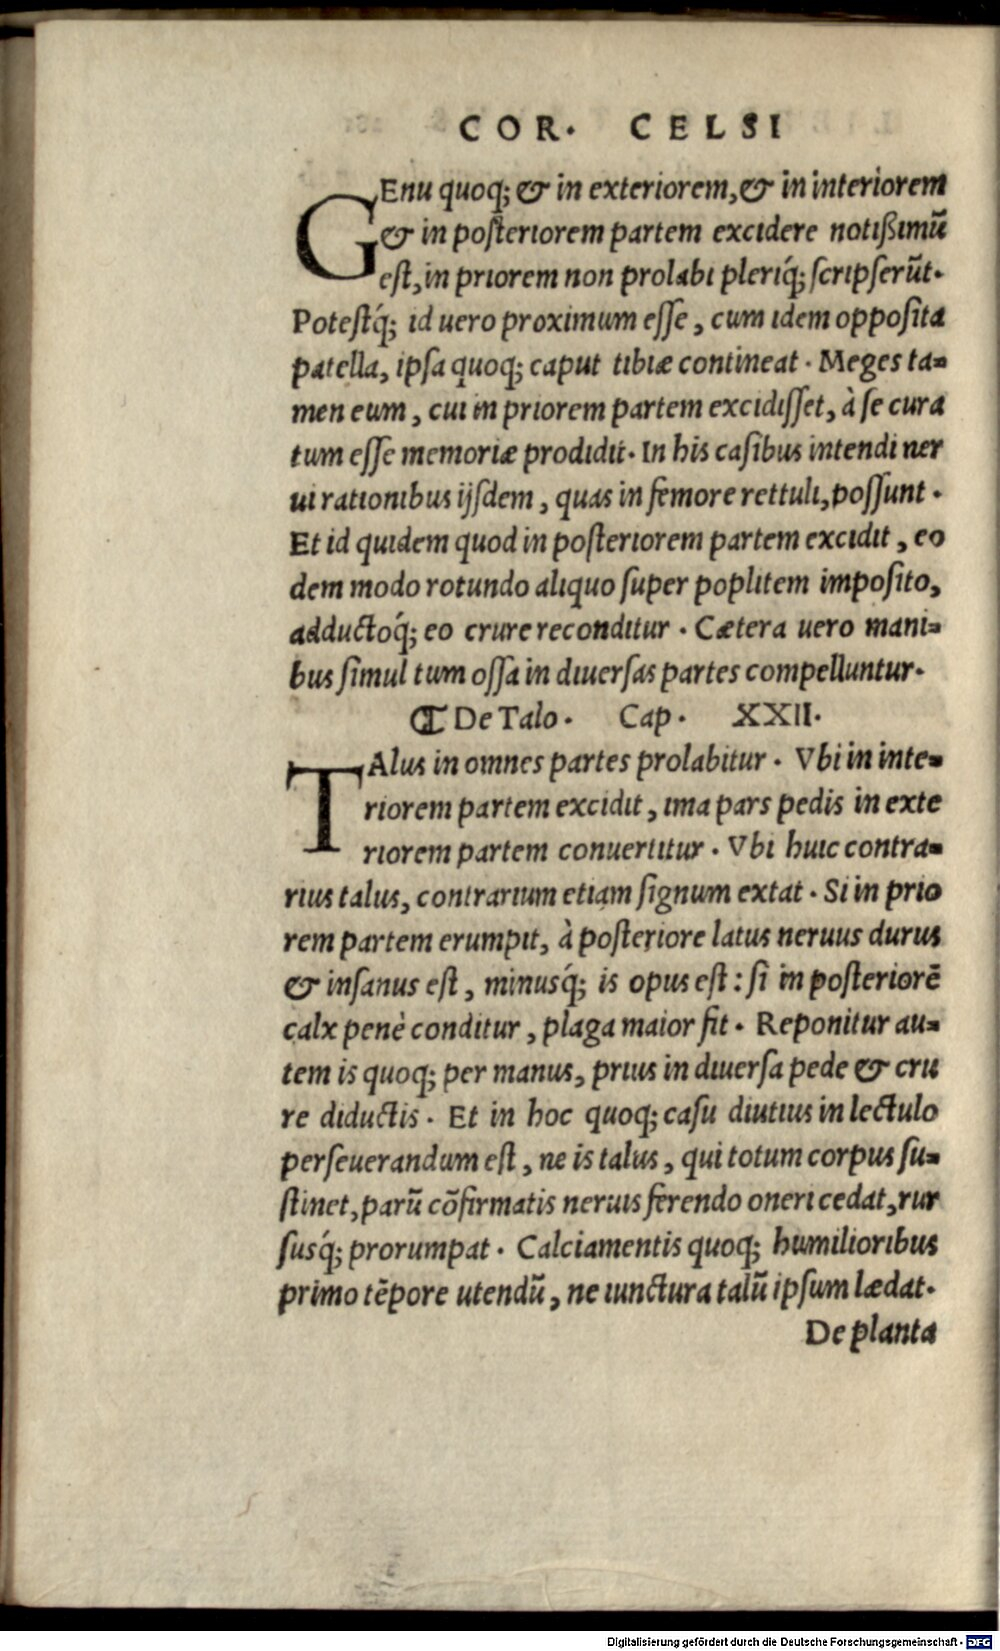 COR. CELSI
GEnu quoq; & in exteriorem, & in interiorem
& in posteriorem partem excidere notißimũ
est, in priorem non prolabi pleriq́; scripserũt.
Potestq́; id uero proximum esse, cum idem opposita
patella, ipsa quoq; caput tibiæ contineat. Meges ta=
men eum, cui in priorem partem excidisset, à se cura
tum esse memoriæ prodidit. In his casibus intendi ner
ui rationibus ijsdem, quas in femore rettuli, possunt.
Et id quidem quod in posteriorem partem excidit, eo
dem modo rotundo aliquo super poplitem imposito,
adductoq́; eo crure reconditur. Cætera uero mani=
bus simul tum ossa in diuersas partes compelluntur.
❡ De Talo. Cap. XXII.
TAlus in omnes partes prolabitur. Vbi in inte=
riorem partem excidit, ima pars pedis in exte
riorem partem conuertitur. Vbi huic contra=
rius talus, contrarium etiam signum extat. Si in prio
rem partem erumpit, à posteriore latus neruus durus
& insanus est, minusq́; is opus est: si in posteriorẽ
calx penè conditur, plaga maior fit. Reponitur au=
tem is quoq; per manus, prius in diuersa pede & cru
re diductis. Et in hoc quoq; casu diutius in lectulo
perseuerandum est, ne is talus, qui totum corpus su=
stinet, parũ cõfirmatis neruis ferendo oneri cedat, rur
susq́; prorumpat. Calciamentis quoq; humilioribus
primo tẽpore utendũ, ne iunctura talũ ipsum lædat.
De planta
Digitalisierung gefördert durch die Deutsche Forschungsgemeinschaft - DFG